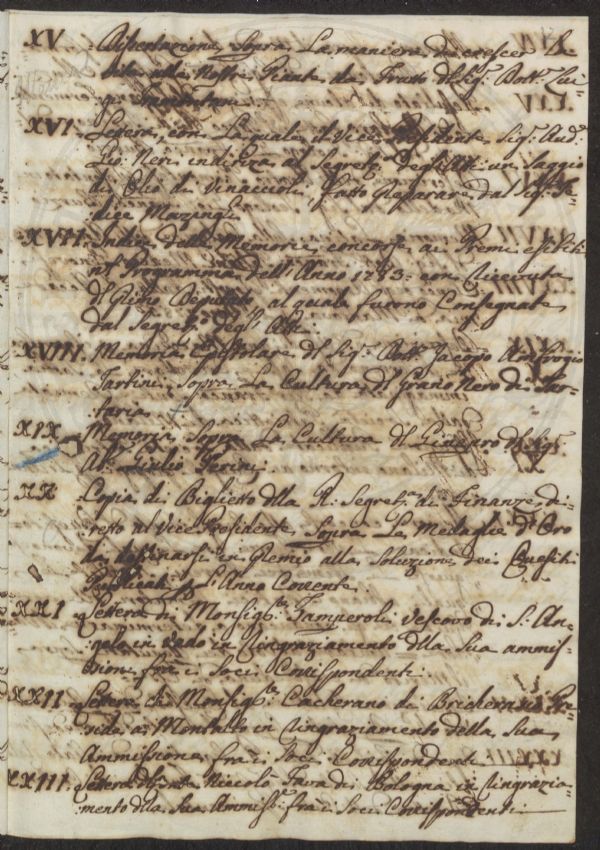 XV. Dissertazione Sopra La maniera di crescer La
Vita alle Nostre Piante da Frutto del Sig.r Dott. Lui=
gi
XVI. Lettera, con La quale il Vice Presidente Sig.r Aud.
Pio. Neri indirizza al Segret.o degli Atti un Saggio
di Olio di Vinaccioli fatto Preparare dal Sig.r Fe=
lice Mazzinghi
XVII. Indice delle Memorie concorse ai Premi esibiti
nel Programma dell'Anno 1783. con Ricevuta
del Primo Deputato al quale furono Consegnate
dal Segret.o degli Atti.
XVIII. Memoria Epistolare del Sig.r Dott. Jacopo Ambrogio
Tartini Sopra La Cultura del Grano Nero di Tar=
taria
XIX. Memoria Sopra La Cultura del del Sig.r
Ab.e Giulio Perini
XX Copia di Biglietto della R. Segret.a di Finanze di=
retto al Vice Presidente Sopra La Medaglia d'Oro
da destinarsi in Premio alla Soluzione dei Quesiti
Publicati L'Anno Corrente.
XXI Lettera di Monsig.re Tamperoli Vescovo di S. An=
gelo in Vado in Ringraziamento della Sua ammis=
sione fra i Soci Corrispondenti.
XXII Lettera di Monsig.re Cacherano di Bricherasio Pre=
side a Montalto in Ringraziamento della Sua
Ammissione fra i Soci Corrispondenti
XXIII. Lettera del Niccolò Fava di Bologna in Ringrazia=
mento della Sua Ammiss.e fra i Soci Corrispondenti